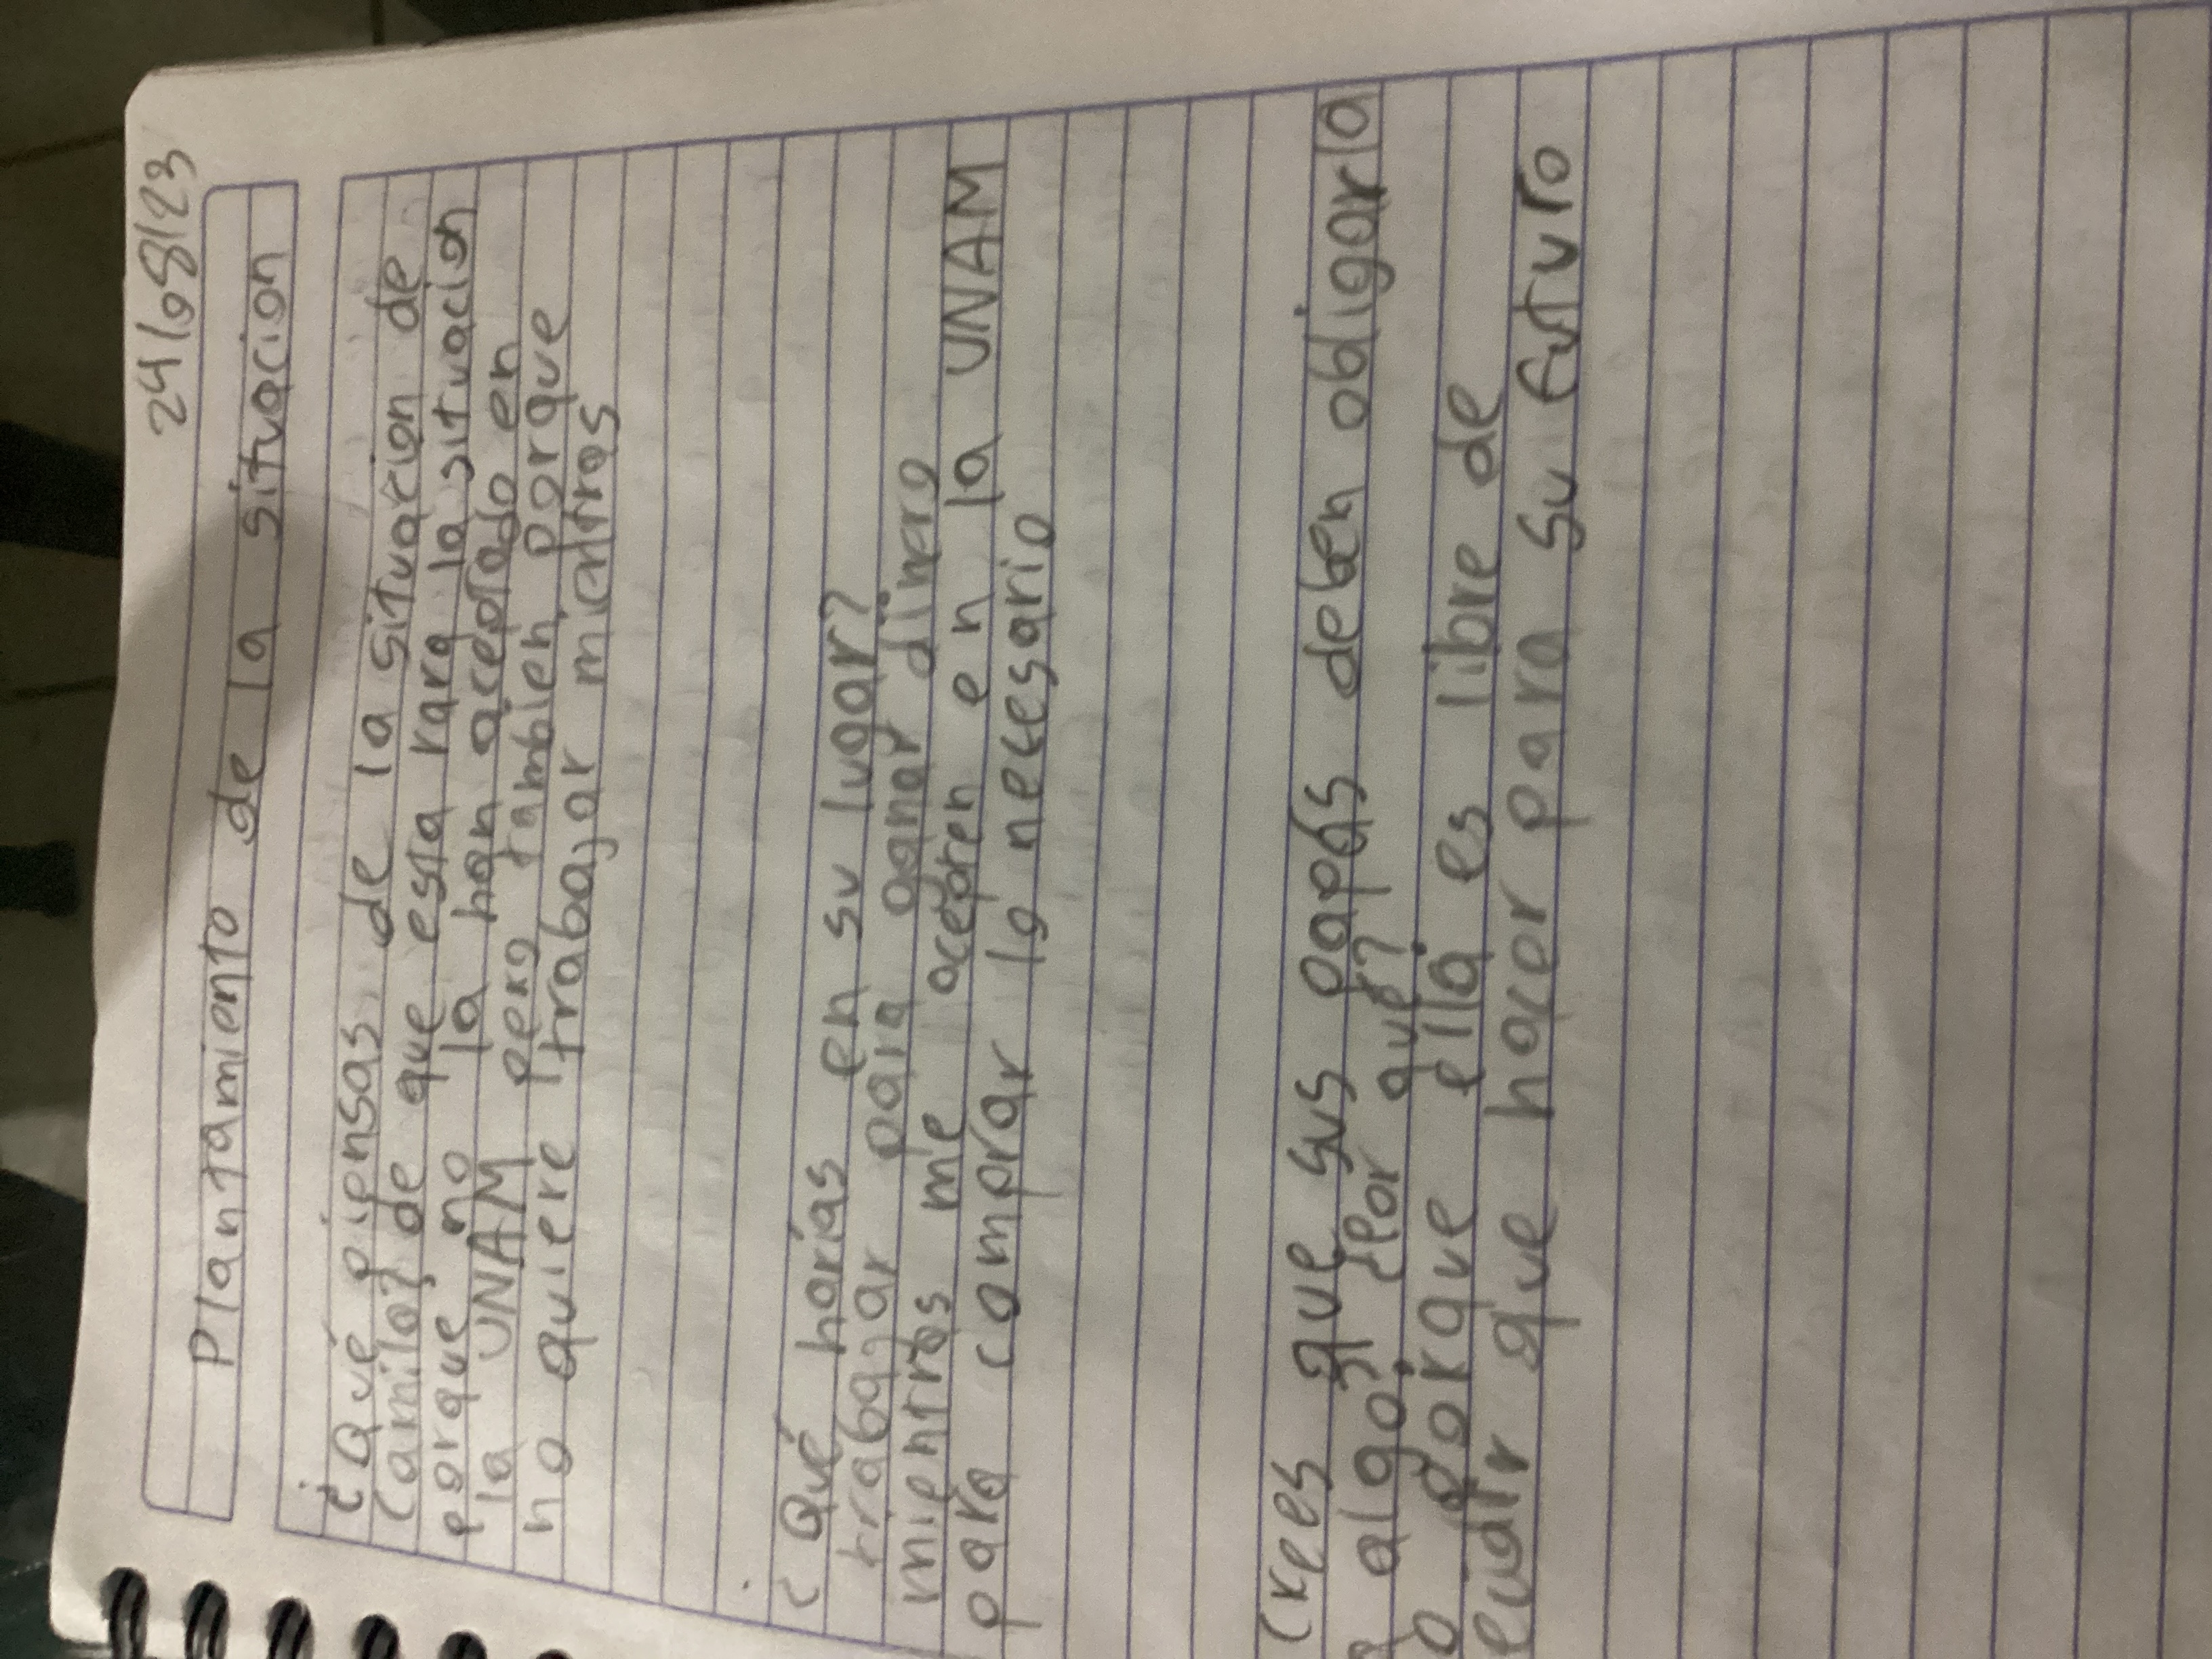 24/08/23
Plantamiento de la situacion
¿Qué piensas de la situacion de
Camila? de que esta rara la situacion
porque no la han aceptado en
la UNAM pero tambien porque
no quiere trabajar mientras
¿Qué harías en su lugar?
trabajar para ganar dinero
mientras me acepten en la UNAM
para comprar lo nesesario
crees que sus papás deben obligarla
a algo? ¿Por qué?
o porque ella es libre de
que hacer para su futuro